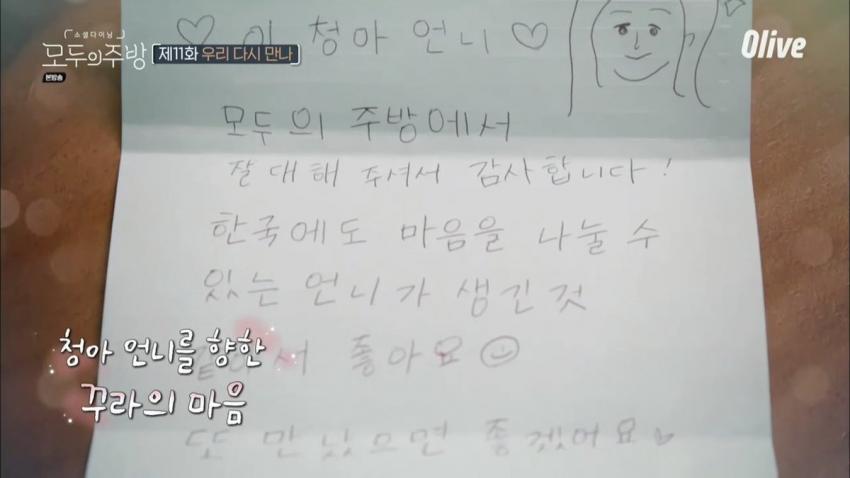 소셜다이닝
모두의주방
본방송
제11화 우리 다시 만나
Olive
♡이 청아 언니♡
모두의 주방에서
잘 대해 주셔서 감사합니다!
한국에도 마음을 나눌 수
있는 언니가 생긴것
같아서 좋아요☺
또 만났으면 좋겠어요♡
청아 언니를 향한
꾸라의 마음